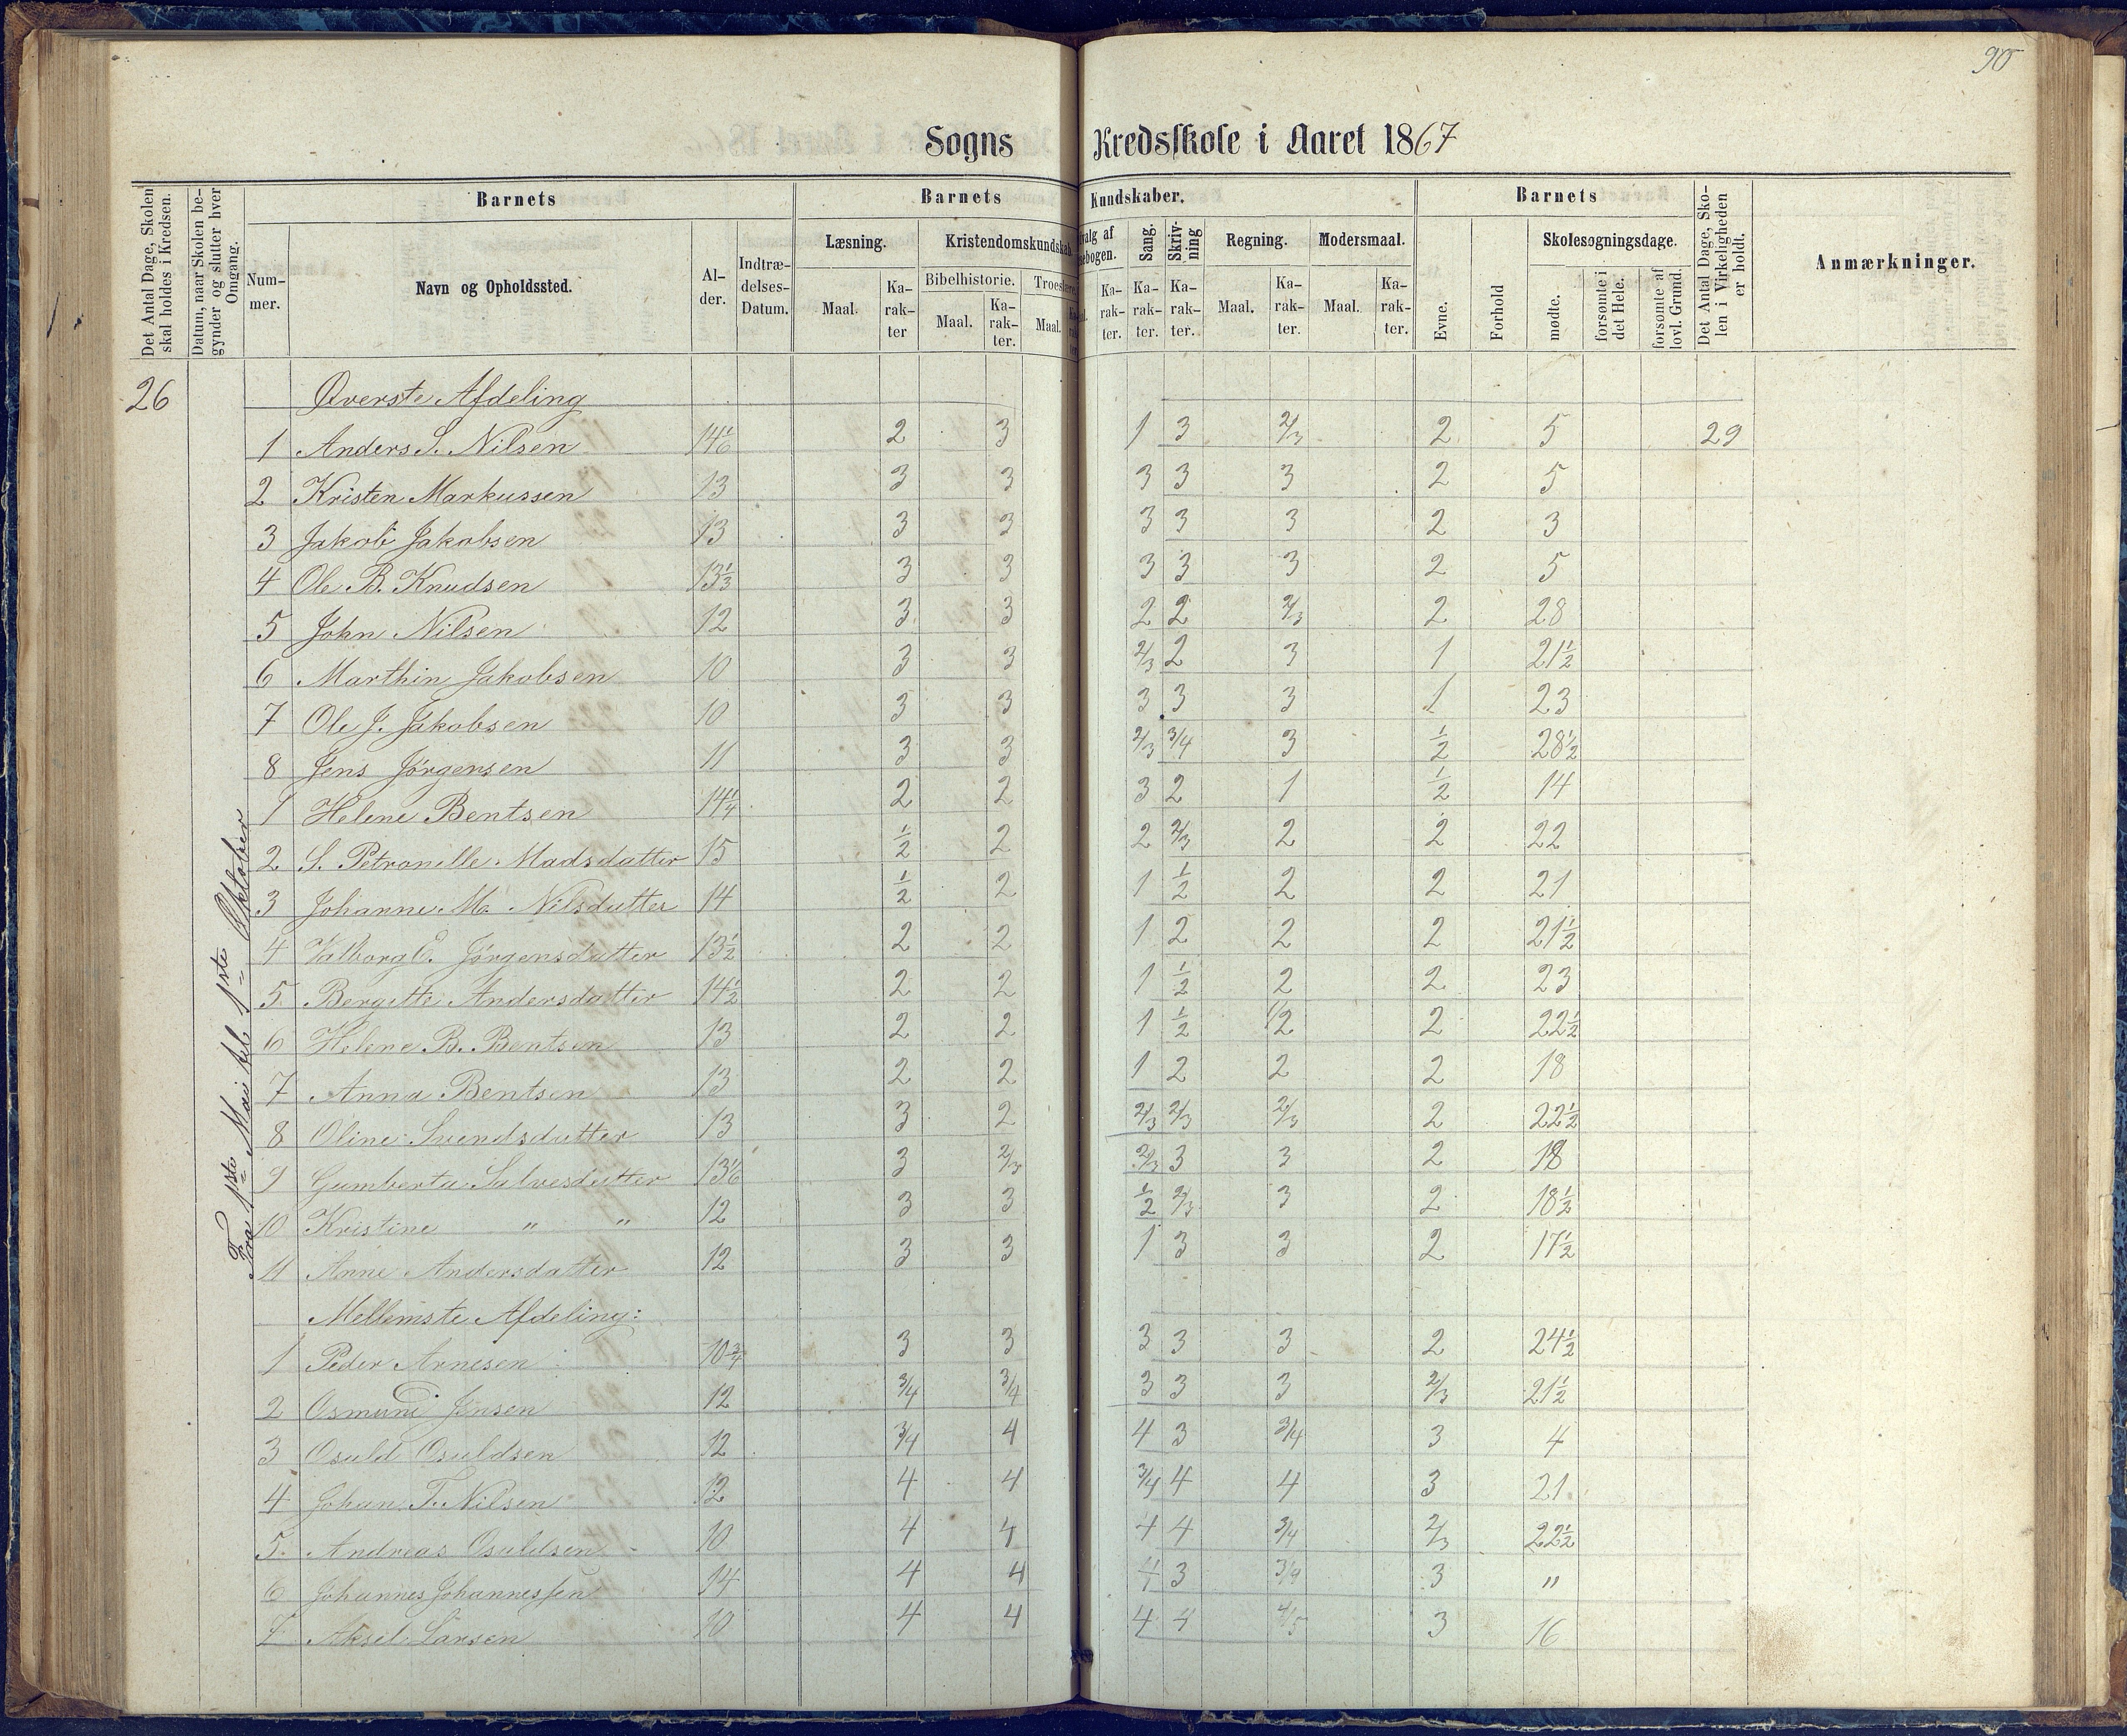 90
Sogns Kredsskole i Aaret 1867
Det Antal Dage, Skolen skal holdes i Kredsen.
Datum, naar Skolen begynder og slutter hver Omgang.
Barnets
Nummer.
Navn og Opholdssted.
Alder.
Indtrædelses-Datum.
Barnets Kundskaber.
Læsning.
Maal.
Karakter
Kristendomskundskab.
Bibelhistorie.
Maal.
Karakter.
Troeslære.
Maal.
Karakter.
Sang.
Karakter.
Skrivning
Karakter.
Regning.
Maal.
Karakter.
Modersmaal.
Maal.
Karakter.
Barnets
Evne.
Forhold
Skolesøgningsdage.
mødte.
forsømte i det Hele.
forsømte af lovl. Grund.
Det Antal Dage, Skolen i Virkeligheden er holdt.
Anmærkninger.
26
Fra 1ste Mai til 1ste Oktober
Øverste Afdeling
1 Anders S. Nilsen 14 1/6 2 3 1 3 2/3 2 5 29
2 Kristen Markussen 13 3 3 3 3 3 2 5
3 Jakob Jakobsen 13 3 3 3 3 3 2 3
4 Ole B. Knudsen 13 1/3 3 3 3 3 3 2 5
5 John Nilsen 12 3 3 2 2 2/3 2 28
6 Marthin Jakobsen 10 3 3 2/3 2 3 1 21 1/2
7 Ole J. Jakobsen 10 3 3 3 3 3 1 23
8 Jens Jørgensen 11 3 3 2/3 3/4 3 1/2 28 1/2
1 Helene Bentsen 14 1/4 2 2 3 2 1 1/2 14
2 S. Petronille Madsdatter 15 1/2 2 2 2/3 2 2 22
3 Johanne M. Nilsdatter 14 1/2 2 1 1/2 2 2 21
4 Valborg E. Jørgensdatter 13 1/2 2 2 1 2 2 2 21 1/2
5 Bergitte Andersdatter 14 1/2 2 2 1 1/2 2 2 23
6 Helene B. Bentsen 13 2 2 1 1/2 1/2 2 22 1/2
7 Anna Bentsen 13 2 2 1 2 2 2 18
8 Oline Svendsdatter 13 3 2 2/3 2/3 2/3 2 22 1/2
9 Gumberta Salvesdatter 13 1/6 3 2/3 2/3 3 3 2 18
10 Kristine " " 12 3 3 1/2 2/3 3 2 18 1/2
11 Anne Andersdatter 12 3 3 1 3 3 2 17 1/2
Mellemste Afdeling:
1 Peder Arnesen 10 3/4 3 3 3 3 3 2 24 1/2
2 Osmund Jensen 12 3/4 3/4 3 3 3 2/3 21 1/2
3 Osuld Osuldsen 12 3/4 4 4 3 3/4 3 4
4 Johan T. Nilsen 12 4 4 3/4 4 4 3 21
5 Andreas Osuldsen 10 4 4 4 4 3/4 2/3 22 1/2
6 Johannes Johannessen 14 4 4 3 3/4 3 "
7 Aksel Larsen 10 4 4 4 4 4/5 3 16